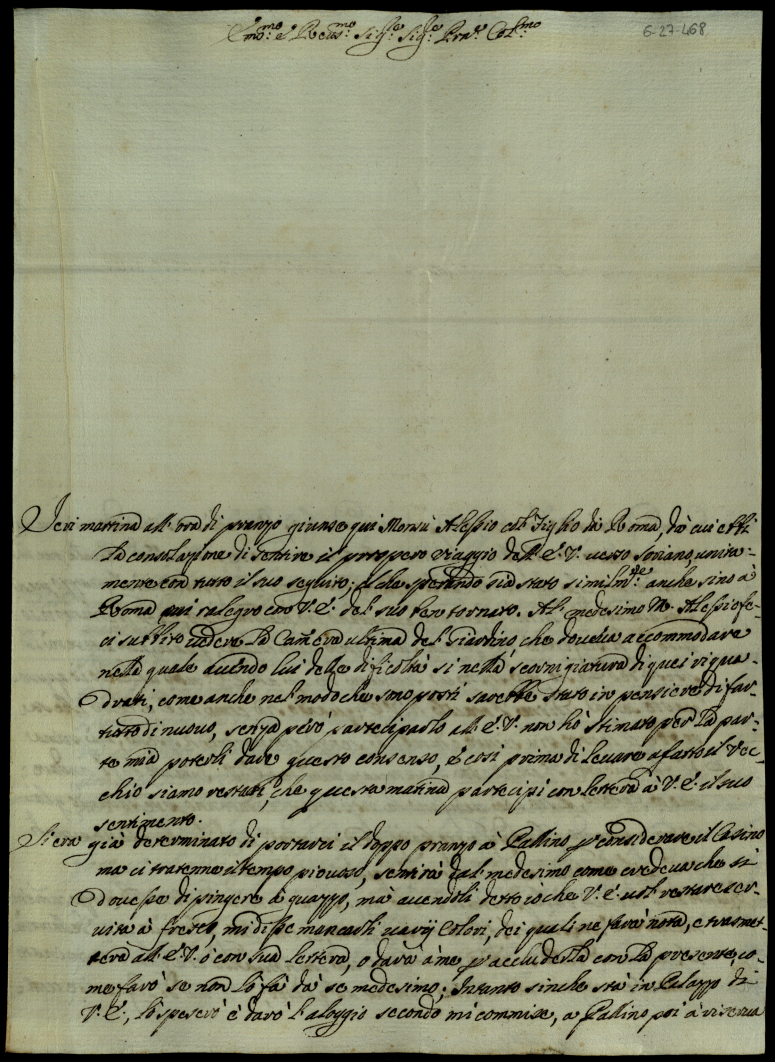 Em:mo e Reu:mo Sig:re Sig:re Pra'n Col:mo
6-27-468
Ieri mattina all'ora di pranzo giunse qui Monsù Alessio col Figlio dà Roma, dà cui ebbi
la consolazione di sentire il prospero viaggio dell'E.V. verso Soriano, unita-
mente con tutto il suo seguito; e sperando sia stato similm.te anche sino à
Roma mi ralegro con V.E. del suo ben tornato. Al medesimo M. Alessio fe-
ci subbito vedere la Camera ultima del Giardino che doveva accommodare
nella quale avendo lui delle dificoltà si nella scornigiatura di quei riqua-
drati, come anche nel modo che sono posti sarebbe stato in pensiere di far
tutto di nuovo, senza però parteciparlo all'E.V. non hò stimato per la par-
te mia poterli dare questo consenso, è così prima di levare afatto il Vec-
chio siamo restati, che questa matina partecipi con lettera à V.E. il suo
sentimento.
Si era già determinato di portarci il doppo pranzo à Pallino p considerare il Casino
ma ci tratenne il tempo piouoso, sentirà dal medesimo come credeva che si
dovesse dipingere à guazzo, mà avendoli detto iò che V.E. vol restare ser-
uita à fresco, mi disse mancarli varij Colori, dei quali ne farà nota, e trasmet-
terà all'E.V. ò con sua lettera, o darà à me p accluderla con la presente, co-
me farò se non lo fà dà se medesimo; Intanto sinche stà in Palazzo di
V.E., lo speserò è darò l'aloggio secondo mi commise, a Pallino poi à riserua